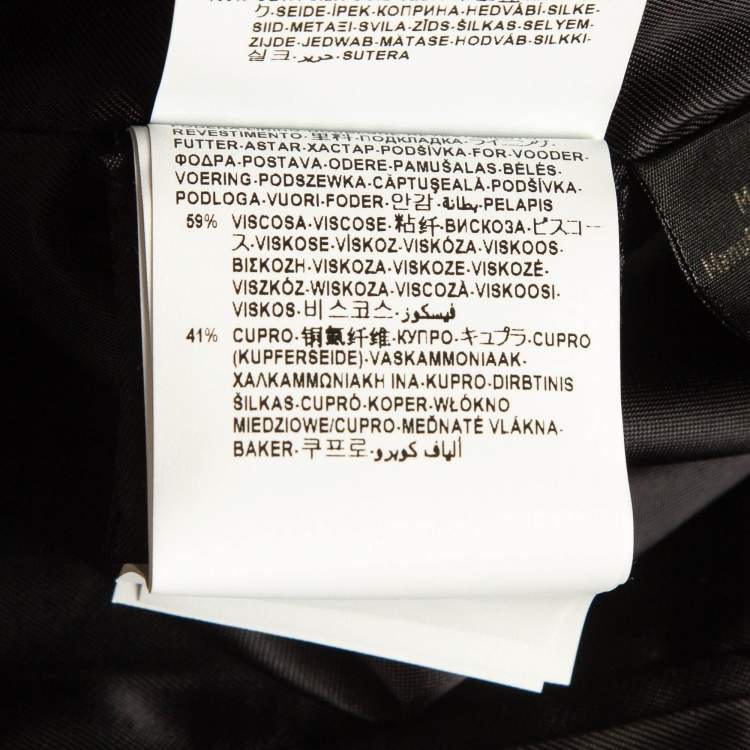 ク·SEIDE·İPEK·КОПРИНА·HEDVÁBÍ·SILKE·
SIID·ΜΕΤΑΞΙ·SVILA·ZĪDS·ŠILKAS·SELYEM·
ZIJDE·JEDWAB·MĂTASE·HODVÁB·SILKKI·
실크·حرير·SUTERA
REVESTIMENTO·里料·ПОДКЛАДКА·ライニング·
FUTTER·ASTAR·ХАСТАР·PODŠÍVKA·FOR·VOODER·
ΦΟΔΡΑ·POSTAVA·ODERE·PAMUŠALAS·BÉLÉS·
VOERING·PODSZEWKA·CĂPTUŞEALĂ·PODŠÍVKA·
PODLOGA·VUORI·FODER·안감·بطانة·PELAPIS
59% VISCOSA·VISCOSE·粘纤·ВИСКОЗА·ビスコー
ス·VISKOSE·VİSKOZ·VISKÓZA·VISKOOS·
ΒΙΣΚΟΖΗ·VISKOZA·VISKOZE·VISKOZĖ·
VISZKÓZ·WISKOZA·VISCOZĂ·VISKOOSI·
VISKOS·비스코스·فيسكوز
41% CUPRO·铜氨纤维·КУПРО·キュプラ·CUPRO
(KUPFERSEIDE)·VASKAMMONIAAK·
ΧΑΛΚΑΜΜΩΝΙΑΚΗ ΙΝΑ·KUPRO·DIRBTINIS
ŠILKAS·CUPRÓ·KOPER·WŁÓKNO
MIEDZIOWE/CUPRO·MEĎNATÉ VLÁKNA·
BAKER·쿠프로·ألياف كوبرو